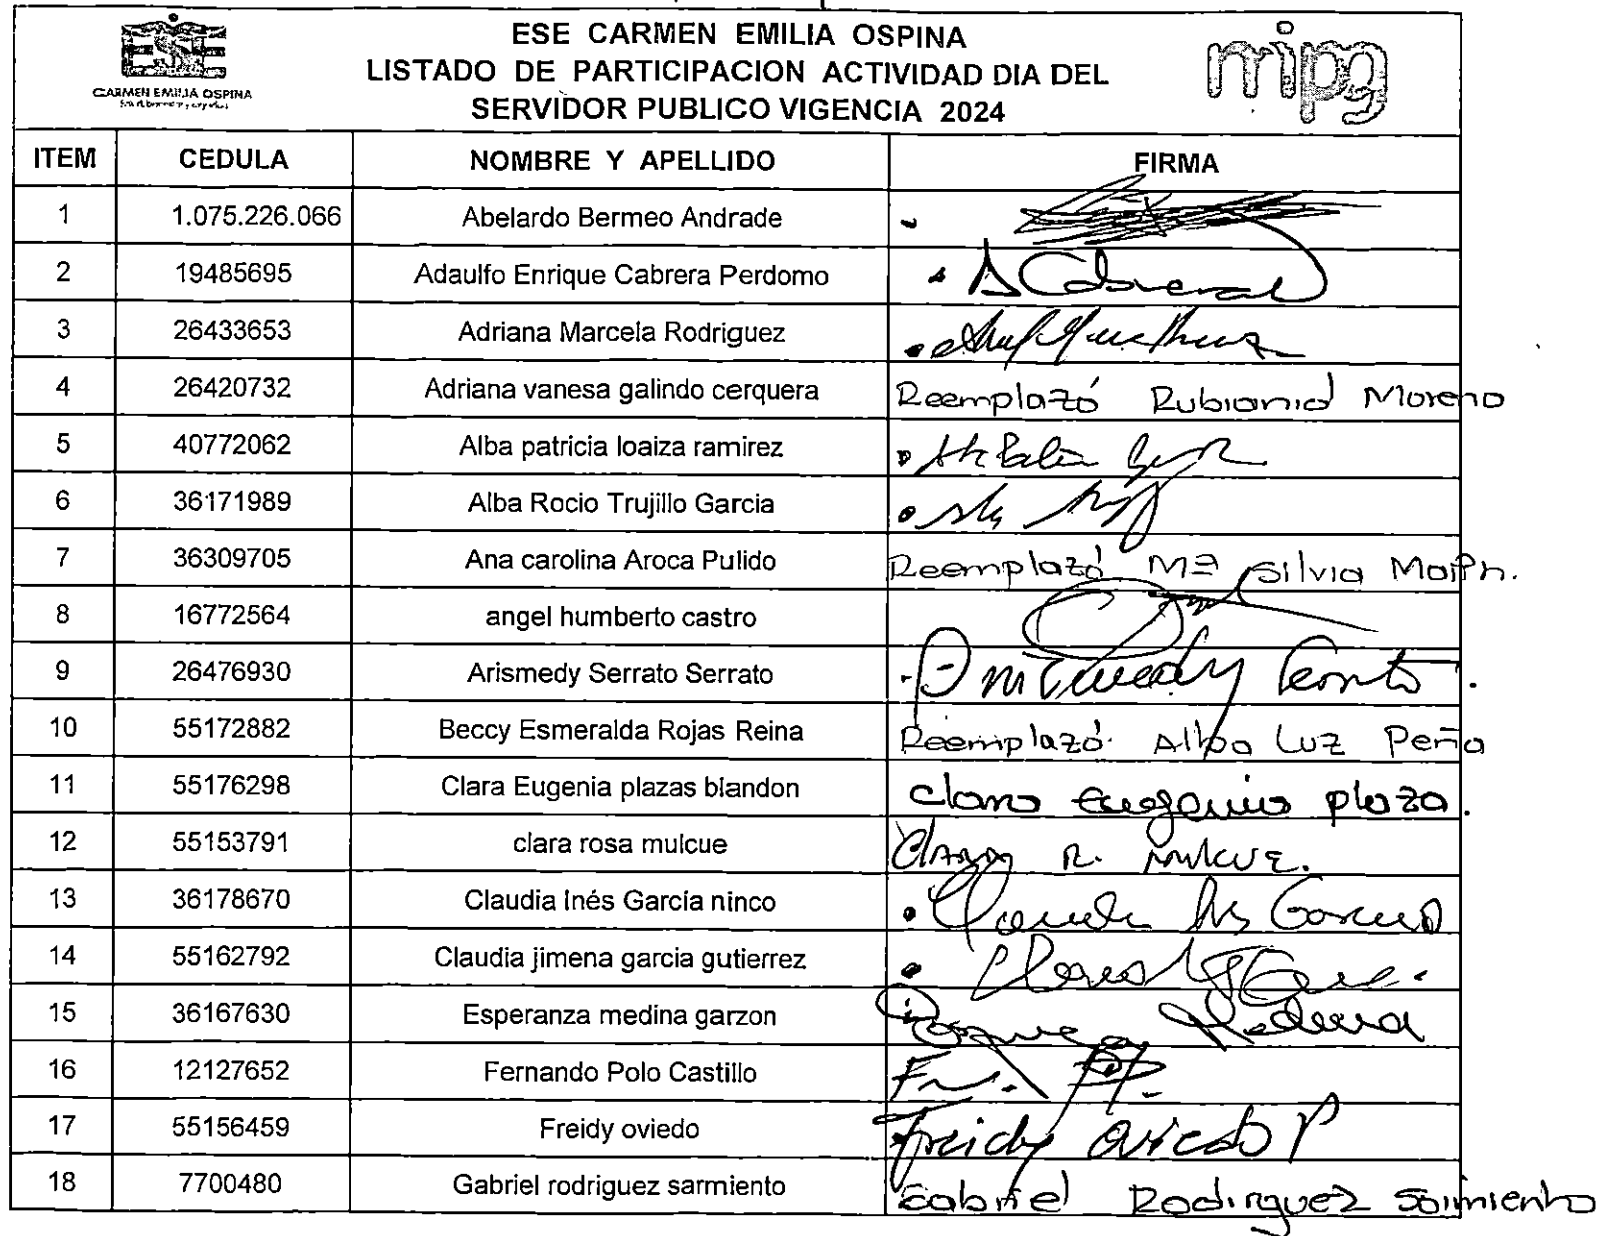 ESE
CARMEN EMILIA OSPINA
ESE CARMEN EMILIA OSPINA
LISTADO DE PARTICIPACION ACTIVIDAD DIA DEL
SERVIDOR PUBLICO VIGENCIA 2024
mipg
ITEM CEDULA NOMBRE Y APELLIDO FIRMA
1 1.075.226.066 Abelardo Bermeo Andrade
2 19485695 Adaulfo Enrique Cabrera Perdomo A Cabrera
3 26433653 Adriana Marcela Rodriguez
4 26420732 Adriana vanesa galindo cerquera Reemplazó Rubianid Moreno
5 40772062 Alba patricia loaiza ramirez
6 36171989 Alba Rocio Trujillo Garcia
7 36309705 Ana carolina Aroca Pulido Reemplazó Mª Silvia
8 16772564 angel humberto castro
9 26476930 Arismedy Serrato Serrato
10 55172882 Beccy Esmeralda Rojas Reina Reemplazó Alba Luz Peña
11 55176298 Clara Eugenia plazas blandon Clara Eugenia plaza.
12 55153791 clara rosa mulcue Clara R. mulcue.
13 36178670 Claudia Inés García ninco
14 55162792 Claudia jimena garcia gutierrez
15 36167630 Esperanza medina garzon Medina
16 12127652 Fernando Polo Castillo
17 55156459 Freidy oviedo Freidy Oviedo P
18 7700480 Gabriel rodriguez sarmiento Gabriel Rodriguez Sarmiento